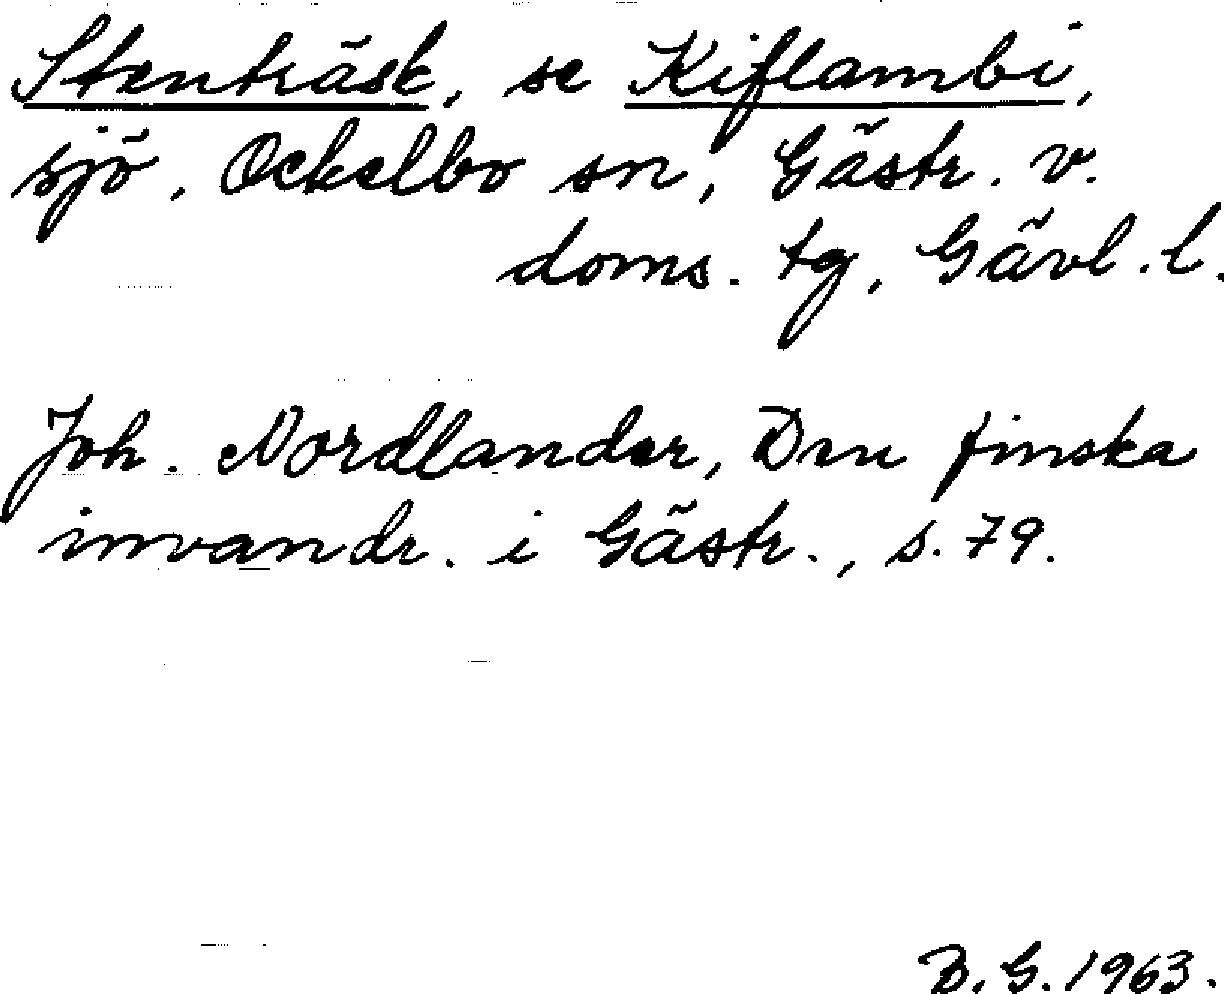 Stenträsk, se Kiflambi,
sjö, Ockelbo sn, Gästr. v.
doms. tg, Gävl. l.
Joh. Nordlander, Den finska
invandr. i Gästr., s. 79.
B. G. 1963.